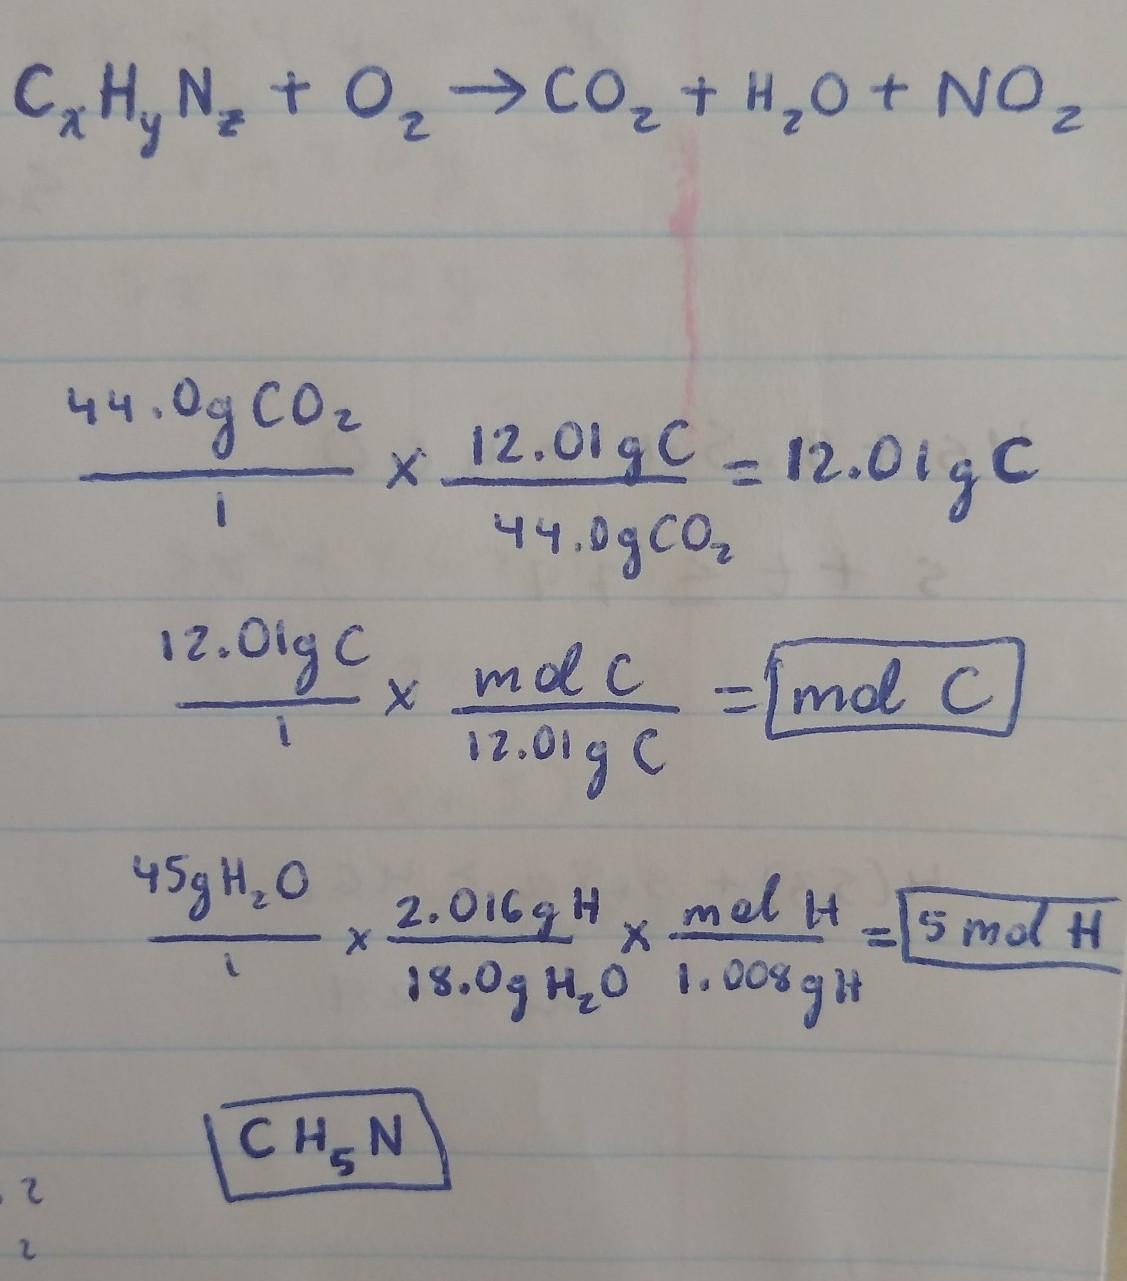 CₓHᵧN_z + O₂ → CO₂ + H₂O + NO₂
44.0g CO₂ / 1 × 12.01g C / 44.0g CO₂ = 12.01g C
12.01g C / 1 × mol C / 12.01g C = mol C
45g H₂O / 1 × 2.016g H / 18.0g H₂O × mol H / 1.008g H = 5 mol H
CH₅N
2
2